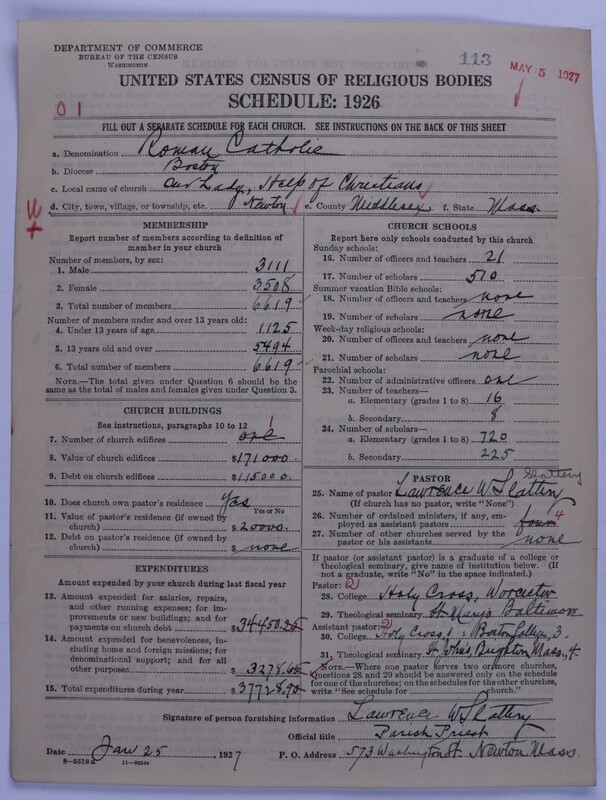 DEPARTMENT OF COMMERCE
BUREAU OF THE CENSUS
WASHINGTON
113
MAY 5 1927
UNITED STATES CENSUS OF RELIGIOUS BODIES
SCHEDULE: 1926
01
FILL OUT A SEPARATE SCHEDULE FOR EACH CHURCH. SEE INSTRUCTIONS ON THE BACK OF THIS SHEET
a. Denomination Roman Catholic
b. Diocese Boston
c. Local name of church Our Lady, Help of Christians
d. City, town, village, or township, etc. Newton e. County Middlesex f. State Mass.
MEMBERSHIP
Report number of members according to definition of member in your church
Number of members, by sex:
1. Male 3111
2. Female 3508
3. Total number of members 6619
Number of members under and over 13 years old:
4. Under 13 years of age 1125
5. 13 years old and over 5494
6. Total number of members 6619
NOTE.—The total given under Question 6 should be
same as the total of males and females given under Question 3.
CHURCH BUILDINGS
See instructions, paragraphs 10 to 12
7. Number of church edifices one 1
8. Value of church edifices $171000.
9. Debt on church edifices $115000.
10. Does church own pastor's residence? Yes
Yes or No
11. Value of pastor's residence (if owned by
church) $20000.
12. Debt on pastor's residence (if owned by
church) $ none
EXPENDITURES
Amount expended by your church during last fiscal year
13. Amount expended for salaries, repairs,
and other running expenses; for im-
provements or new buildings; and for
payments on church debt $34450.25
14. Amount expended for benevolences, in-
cluding home and foreign missions; for
denominational support; and for all
other purposes $3278.65
15. Total expenditures during year $37728.90
CHURCH SCHOOLS
Report here only schools conducted by this church
Sunday schools:
16. Number of officers and teachers 21
17. Number of scholars 510
Summer vacation Bible schools:
18. Number of officers and teachers none
19. Number of scholars none
Week-day religious schools:
20. Number of officers and teachers none
21. Number of scholars none
Parochial schools:
22. Number of administrative officers one
23. Number of teachers—
a. Elementary (grades 1 to 8) 16
b. Secondary 8
24. Number of scholars—
a. Elementary (grades 1 to 8) 720
b. Secondary 225
PASTOR
Slattery
25. Name of pastor Lawrence W. Slattery
(If church has no pastor, write "None")
26. Number of ordained ministers, if any, em-
ployed as assistant pastors four 4
27. Number of other churches served by the
pastor or his assistants none
If pastor (or assistant pastor) is a graduate of a college or
theological seminary, give name of institution below. (If
not a graduate, write "No" in the space indicated.)
Pastor: 2
28. College Holy Cross, Worcester
29. Theological seminary St. Mary's Baltimore
Assistant pastor: 2
30. College Holy Cross, 1; Boston College, 3.
31. Theological seminary St. John's, Brighton Mass., 4.
NOTE.—Where one pastor serves two or more churches,
Questions 28 and 29 should be answered only on the schedule
for one of the churches; on the schedules for the other churches,
write "See schedule for church."
Signature of person furnishing information Lawrence W. Slattery
Official title Parish Priest
Date Jan 25, 1927 P. O. Address 573 Washington St. Newton Mass.
8—5518a 11—9054a